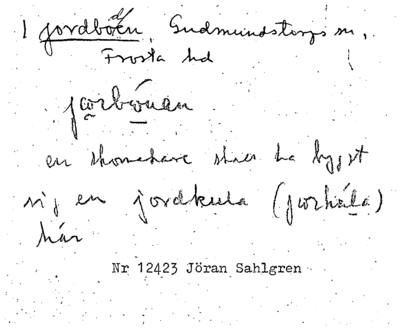 1 jordboen, Gudmundstorps sn,
Frosta hd
jorbouan
en skomakare skall ha byggt
sig en jordkula (jorkula)
här
Nr 12423 Jöran Sahlgren